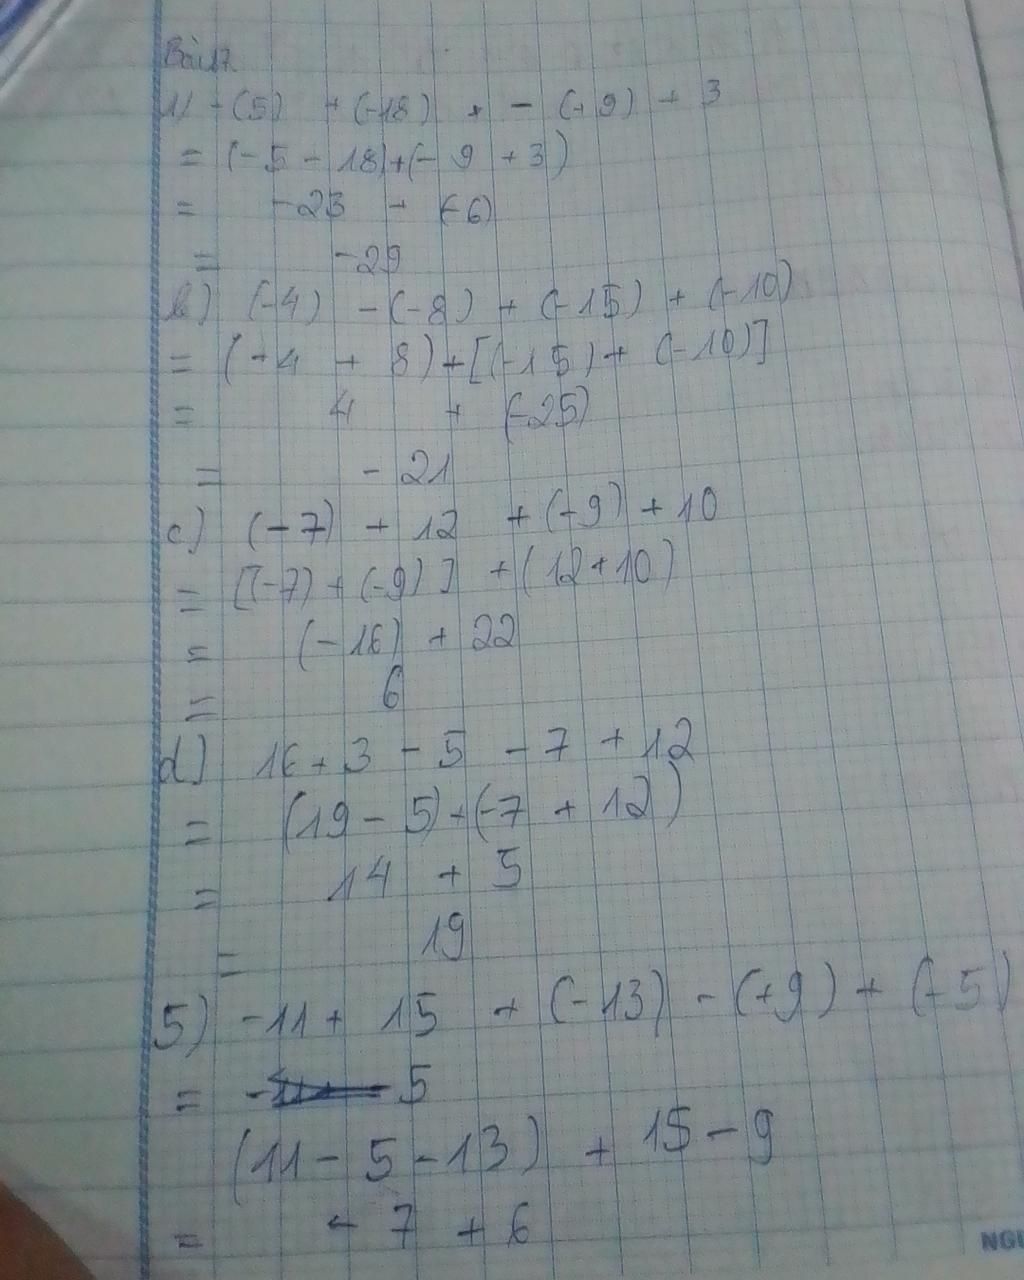 Bài 17
1) -(5) + (-18) + - (+9) + 3
= (-5 - 18) + (- 9 + 3)
= -23 - (-6)
= -29
b) (-4) - (-8) + (-15) + (-10)
= (-4 + 8) + [(-15) + (-10)]
= 4 + (-25)
= - 21
c) (-7) + 12 + (-9) + 10
= [(-7) + (-9)] + (12+10)
= (-16) + 22
= 6
d) 16 + 3 - 5 - 7 + 12
= (19 - 5) + (-7 + 12)
= 14 + 5
= 19
5) -11 + 15 + (-13) - (+9) + (-5)
= - 5
(11 - 5 - 13) + 15 - 9
= - 7 + 6